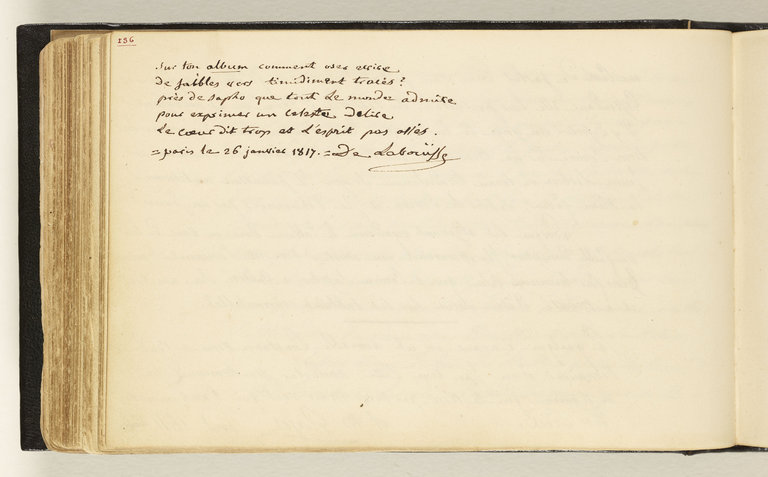 136
Sur ton album comment oser ecrire
de faibles vers timidement tracés?
près de Sapho que tout le monde admire
pour exprimer un celeste delire
Le cœur dit trop et l'esprit pas assés.
= paris le 26 janvier 1817. = De Labouïsse